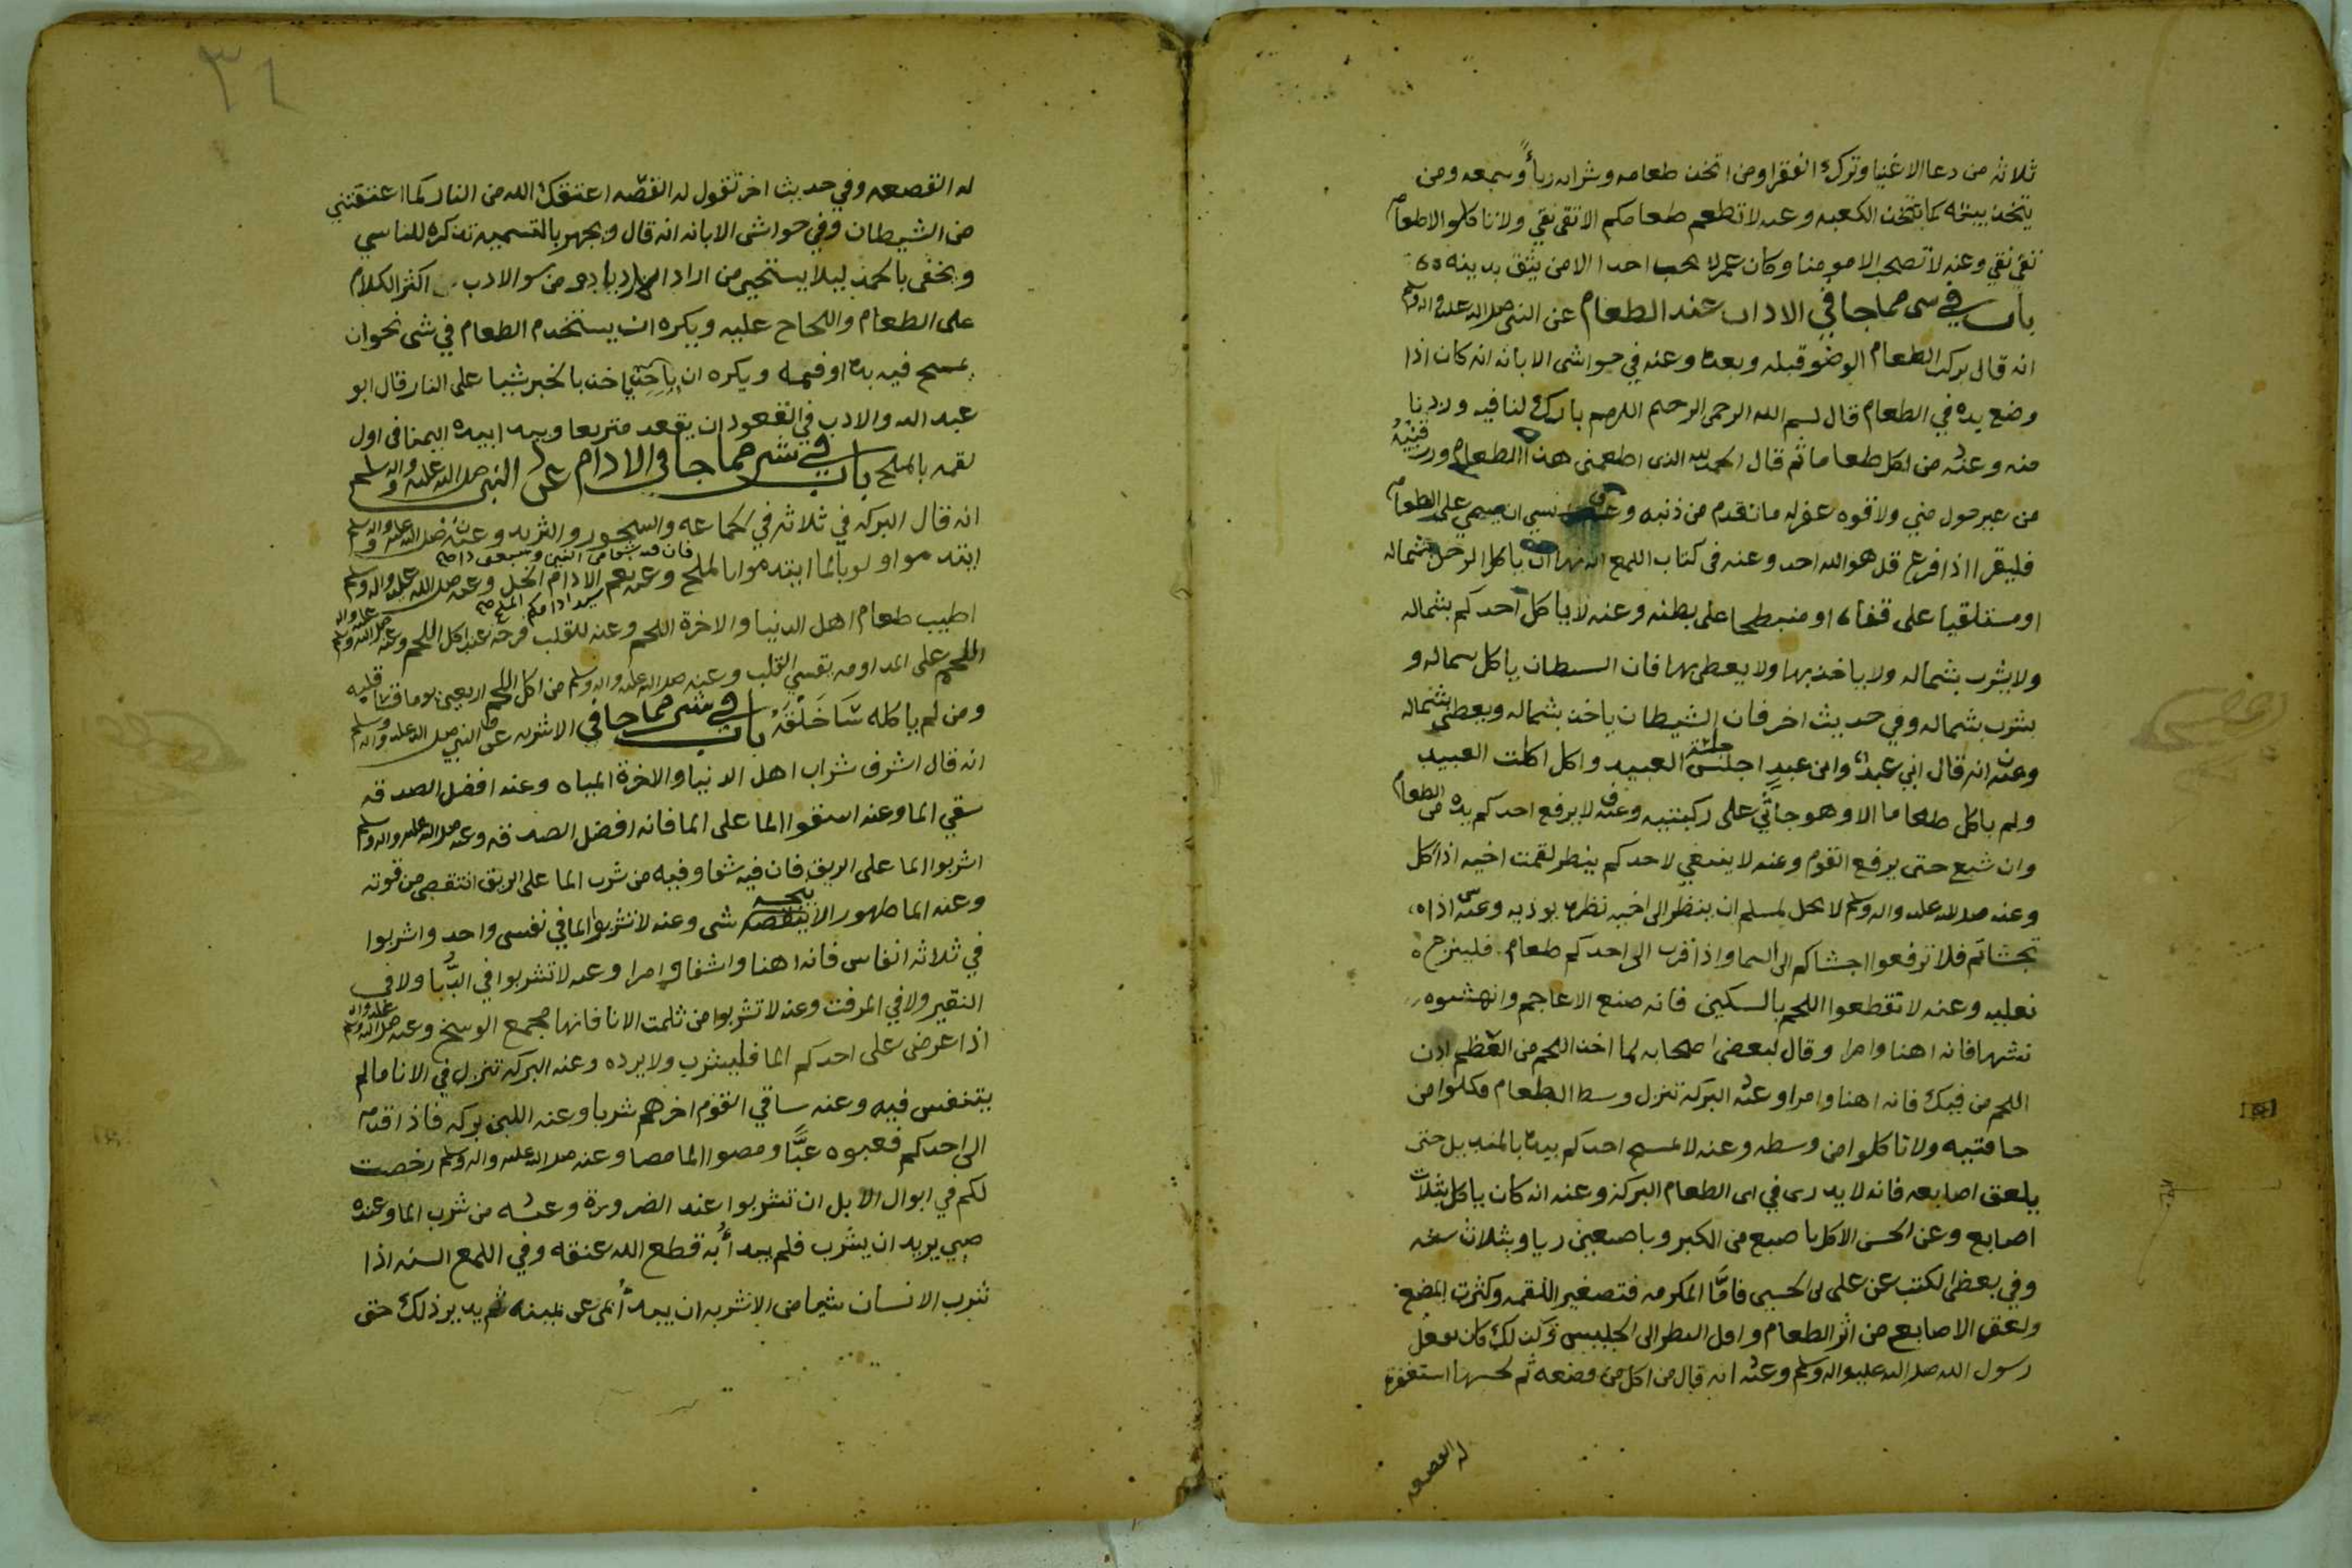 ثلاثه من دعا الاغنيا وترك الفقرا ومن اتخذ طعامه وشرابه رياً وسمعه ومن
يتخذ بيته كما تتخذ الكعبه وعنه لا تطعم طعامكم الا تقي نقي ولا تاكلو الا طعام
تقي نقي وعنه لا تصحب الا مومنا وكان عمر لا يحب احدا الا من يثق بدينه
باب في شي مما جا في الاداب عند الطعام عن النبي صلى الله عليه واله وسلم
انه قال بركه الطعام الوضو قبله وبعده وعنه في حواشي الابانه انه كان اذا
وضع يده في الطعام قال لسم الله الرحمن الرحيم اللهم بارك لنا فيه وزدنا
منه وعنه من اكل طعاما ثم قال الحمد لله الذي اطعمني هذا الطعام ورزقنيه
من غير حول مني ولا قوه غفر له ما تقدم من ذنبه نسي ان يسمي على الطعام
فليقرا اذا فرغ قل هو الله احد وعنه في كتاب اللمع انه نها ان ياكل الرجل بشماله
او مستلقيا على قفاه او منبطحا على بطنه وعنه لا ياكل احدكم بشماله
ولا يشرب بشماله ولا ياخذ بها ولا يعطي بها فان الشيطان ياكل بشماله و
يشرب بشماله وفي حديث اخر فان الشيطان ياخذ بشماله ويعطي بشماله
وعنه انه قال اني عبد وابن عبدٍ اجلس جلسة العبيد واكل اكلت العبيد
ولم ياكل طعاما الا وهو جاثي على ركبتيه وعنه لا يرفع احدكم يده من الطعام
وان شبع حتى يرفع القوم وعنه لا ينبغي لاحدكم ينظر لقمت اخيه اذا اكل
وعنه صلى الله عليه واله وسلم لا يحل لمسلم ان ينظر الى اخيه نظره يوذيه وعنه اذا
تجشاتم فلا ترفعوا اجشاكم الى السما واذا قرب الى احدكم طعام فلينزع
نعليه وعنه لا تقطعوا اللحم بالسكين فانه صنع الاعاجم وانهشوه
نشها فانه اهنا وامرا وقال لبعض اصحابه لما اخذ اللحم من العظم ادن
اللحم من فيك فانه اهنا وامرا وعنه البركه تنزل وسط الطعام فكلوا من
حافتيه ولا تاكلوا من وسطه وعنه لا يمسح احدكم يده بالمنديل حتى
يلعق اصابعه فانه لا يدرى في اى الطعام البركه وعنه انه كان ياكل بثلاث
اصابع وعن الحسن الاكل باصبع من الكبر وباصبعين ريا وبثلاث سنه
وفي بعض الكتب عن على بن الحسين فامَّا المكرمه فتصغير اللقمه وكثرت المضغ
ولعق الاصابع من اثر الطعام واقل النظر الى الجليس وكذلك كان يفعل
رسول الله صلى الله عليه واله وسلم وعنه انه قال من اكل من قصعه ثم لحسها استغفرة
له القصعه
٣١
له القصعه وفي حديث اخر تقول له القصّه اعتقك الله من النار كما اعتقتني
من الشيطان وفي حواشي الابانه انه قال ويجهر بالتسميه تذكره للناسي
ويخفي بالحمد ليلا يستحيي من اراد من سو الادب اكثر الكلام
على الطعام واللحاح عليه ويكره ان يستخدم الطعام في شي نحو ان
يمسح فيه يده او فمه ويكره ان ياخذ بالخبز شيا على النار قال ابو
عبد الله والادب في القعود ان يقعد متربعا ويبدا بيده اليمنا في اول
لقمه بالملح باب في شي مما جا في الادام عن النبي صلى الله عليه واله وسلم
انه قال البركه في ثلاثه في الجماعه والسحور والثريد وعنه صلى الله عليه واله وسلم
ايتدموا ولو بالما ايتدموا بالملح وعنه نعم الادام الخل وعنه صلى الله عليه واله وسلم
سيد ادامكم الملح صح
اطيب طعام اهل الدنيا والاخرة اللحم وعنه للقلب فرحه عند اكل اللحم وعنه صلى الله عليه واله وسلم
اللحم على المداومه يقسي القلب وعنه صلى الله عليه واله وسلم من اكل اللحم اربعين يوما قسا قلبه
ومن لم ياكله سَا خَلْقَهُ باب في شي مما جا في الاشربه عن النبي صلى الله عليه واله وسلم
انه قال اشرف شراب اهل الدنيا والاخرة المياه وعنه افضل الصدقه
سقي الما وعنه اسقوا الما على الما فانه افضل الصدقه وعنه صلى الله عليه واله وسلم
اشربوا الما على الريق فان فيه شفا وفيه من شرب الما على الريق انتقص من قوته
وعنه الما طهور لا ينجسه شي وعنه لا تشربوا الما في نفس واحد واشربوا
في ثلاثه انفاس فانه اهنا واشفا وامرا وعنه لا تشربوا في الدُّبا ولا في
النقير ولا في المزفت وعنه لا تشربوا من ثلمت الانا فانها مجمع الوسخ وعنه صلى الله عليه واله وسلم
اذا عرض على احدكم الما فليشرب ولا يرده وعنه البركه تنزل في الانا مالم
يتنفس فيه وعنه ساقي القوم اخرهم شربا وعنه اللبن بركه فاذا قدم
الى احدكم فعبوه عبًّا ومصوا الما مصا وعنه صلى الله عليه واله وسلم رخصت
لكم في ابوال الابل ان تشربوا عند الضرورة وعنه من شرب الما وعنده
صبي يريد ان يشرب فلم يبدأ به قطع الله عنقه وفي اللمع السنه اذا
شرب الانسان شيا من الاشربه ان يبدأ بمن عن يمينه ثم يدير ذلك حتى